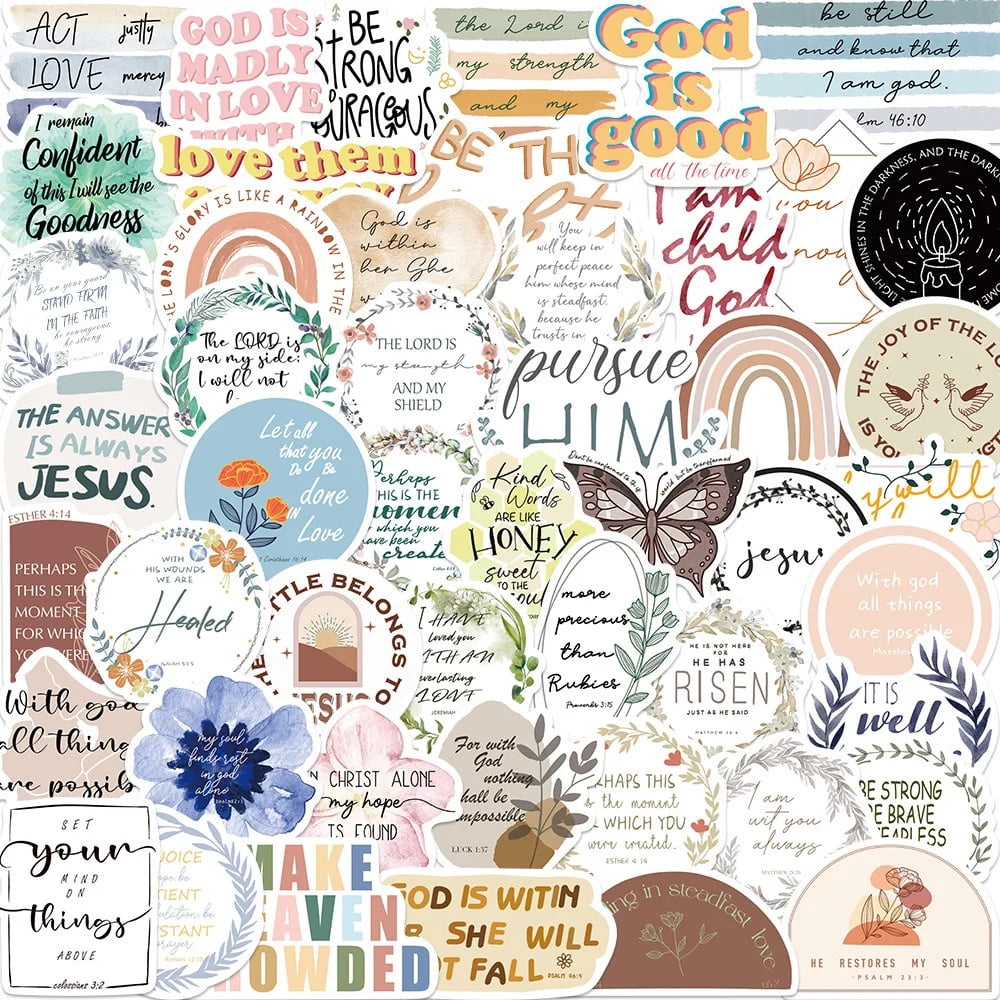 ACT justly
LOVE mercy
GOD IS
MADLY
IN LOVE
WITH
BE
STRONG
COURAGEOUS
the Lord is
my strength
and my
God
is
good
all the time
be still
and know that
I am god.
lm 46:10
I remain
Confident
of this I will see the
Goodness
love them
BE TH
I am
child
God
you
THE LIGHT SHINES IN THE DARKNESS, AND THE DARK
THE LORD'S GLORY IS LIKE A RAINBOW IN THE
God is
within
her She
You
will keep in
perfect peace
him whose mind
is steadfast,
because he
trusts in
Be on your guard
STAND FIRM
IN THE FAITH
be courageous,
be strong
The LORD is
on my side:
I will not
THE LORD IS
my strength
AND MY
SHIELD
pursue
HIM
THE JOY OF THE L
IS YO
THE ANSWER
IS ALWAYS
JESUS.
Let all
that you
Do Be
done
IN
Love
Perhaps
THIS IS THE
moment
for which you
have been
create
Kind
Words
ARE LIKE
HONEY
sweet
TO THE
soul
Don't be conformed to this world but be transformed
jesus
y will
ESTHER 4:14
PERHAPS
THIS IS TH
MOMENT
FOR WHIC
YOU WERE
WITH
HIS WOUNDS
WE ARE
Healed
ISAIAH 53:5
TTLE BELONGS TO
JESUS
I HAVE
loved you
WITH AN
everlasting
LOVE
JEREMIAH
more
precious
than
Rubies
Proverbs 3:15
HE IS NOT HERE
FOR
HE HAS
RISEN
JUST AS HE SAID
MATTHEW 28:6
With god
all things
are possible
Matthew
IT IS
well
With god
all thing
are possib
my soul
finds rest
in god
alone
CHRIST ALONE
my hope
IS FOUND
For with
God
nothing
shall be
impossible
LUCK 1:37
RHAPS THIS
is the moment
WHICH YOU
were created.
ESTHER 4:14
I am
wit you
always
MATTHEW 28:20
BE STRONG
BE BRAVE
FEARLESS
SET
your
MIND
ON
things
ABOVE
colossians 3:2
OICE
hope be
TIENT
STANT
prayer.
Romans 12:12
MAKE
EAVEN
ROWDED
GOD IS WITIN
R SHE WILL
T FALL
PSALM 46:5
ing in steadfast love
HE RESTORES MY SOUL
- PSALM 23:3 -